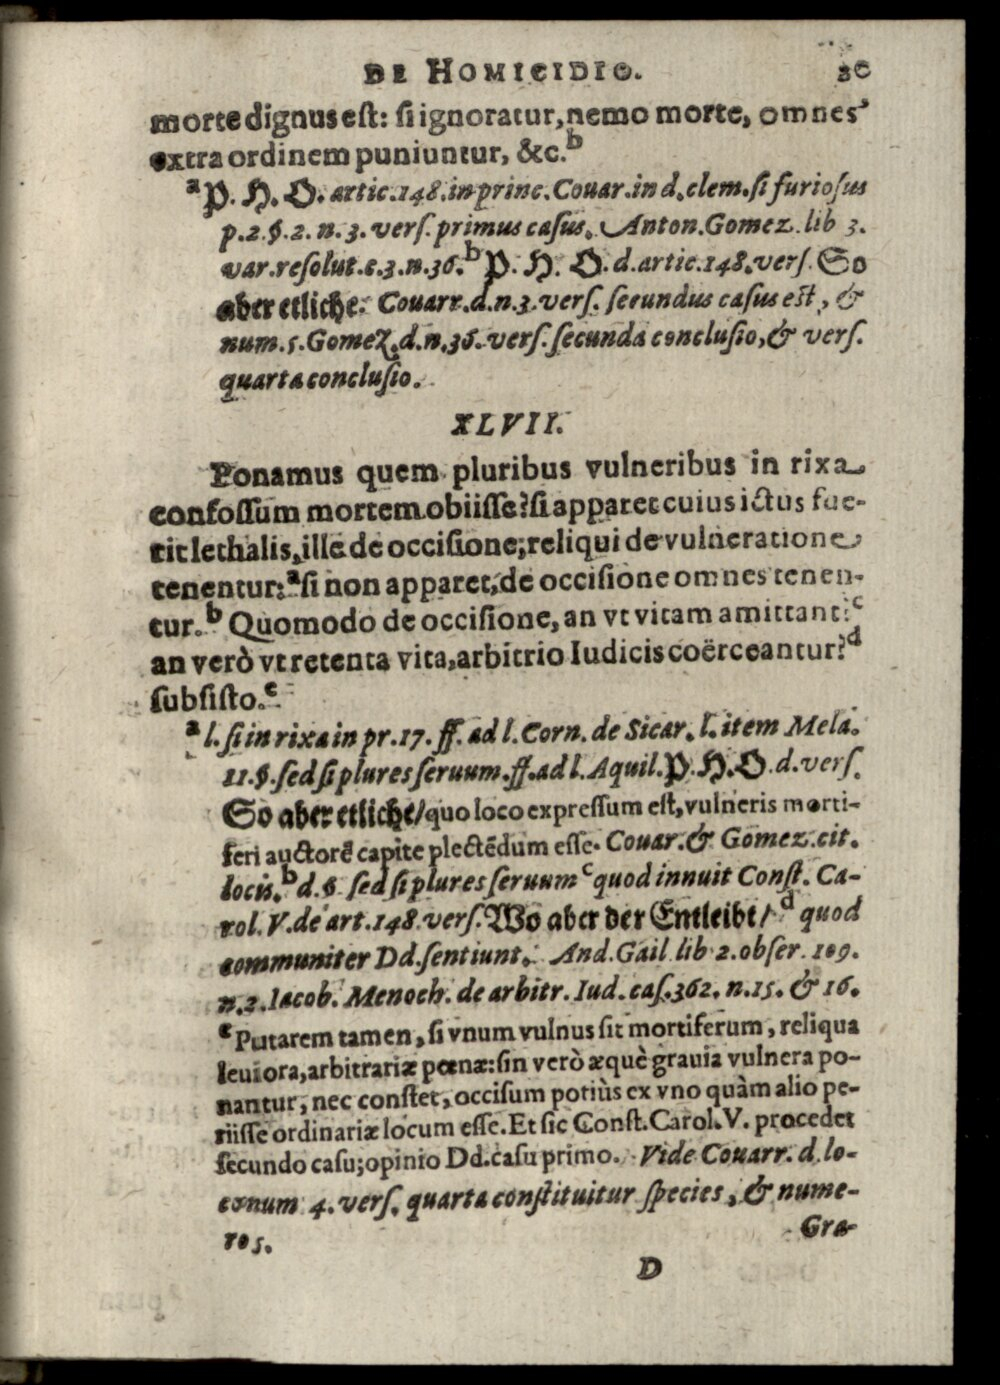 DE HOMICIDIO.
morte dignus est: si ignoratur, nemo morte, omnes
extra ordinem puniuntur, &c.b
a P. H. O. artic. 148. in princ. Couar. in d. clem. si furiosus
p. 2. §. 2. n. 3. vers. primus casus. Anton. Gomez. lib 3.
var. resolut. c. 3. n. 36. b P. H. O. d. artic. 148. vers. So
aber etliche. Couarr. d. n. 3. vers. secundus casus est, &
num. 5. Gomez. d. n. 36. vers. secunda conclusio, & vers.
quarta conclusio.
XLVII.
Ponamus quem pluribus vulneribus in rixa
confossum mortem obiisse? si apparet cuius ictus fue-
rit lethalis, ille de occisione, reliqui de vulneratione
tenentur: a si non apparet, de occisione omnes tenen-
tur. b Quomodo de occisione, an vt vitam amittant? c
an verò vt retenta vita, arbitrio Iudicis coërceantur? d
subsisto. e
a l. si in rixa in pr. 17. ff. ad l. Corn. de Sicar. l. item Mela.
11. §. sed si plures seruum. ff. ad l. Aquil. P. H. O. d. vers.
So aber etliche/ quo loco expressum est, vulneris morti-
feri auctorē capite plectēdum esse. Couar. & Gomez. cit.
locis. b d. §. sed si plures seruum c quod innuit Const. Ca-
rol. V. de art. 148. vers. Wo aber der Entleibt/ d quod
communiter Dd. sentiunt. And. Gail lib 2. obser. 109.
n. 2. Iacob. Menoch. de arbitr. Iud. cas. 362. n. 15. & 16.
e Putarem tamen, si vnum vulnus sit mortiferum, reliqua
leuiora, arbitrariæ pœnæ: sin verò æquè grauia vulnera po-
nantur, nec constet, occisum potiùs ex vno quàm alio pe-
riisse ordinariæ locum esse. Et sic Const. Carol. V. procedet
secundo casu; opinio Dd. casu primo. Vide Couarr. d. lo-
co num 4. vers. quarta constituitur species, & nume-
ro 5.
Gra-
D